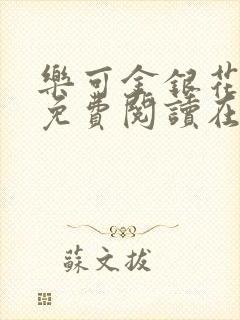 樂可金銀花
免費閱讀在
蘇文拔